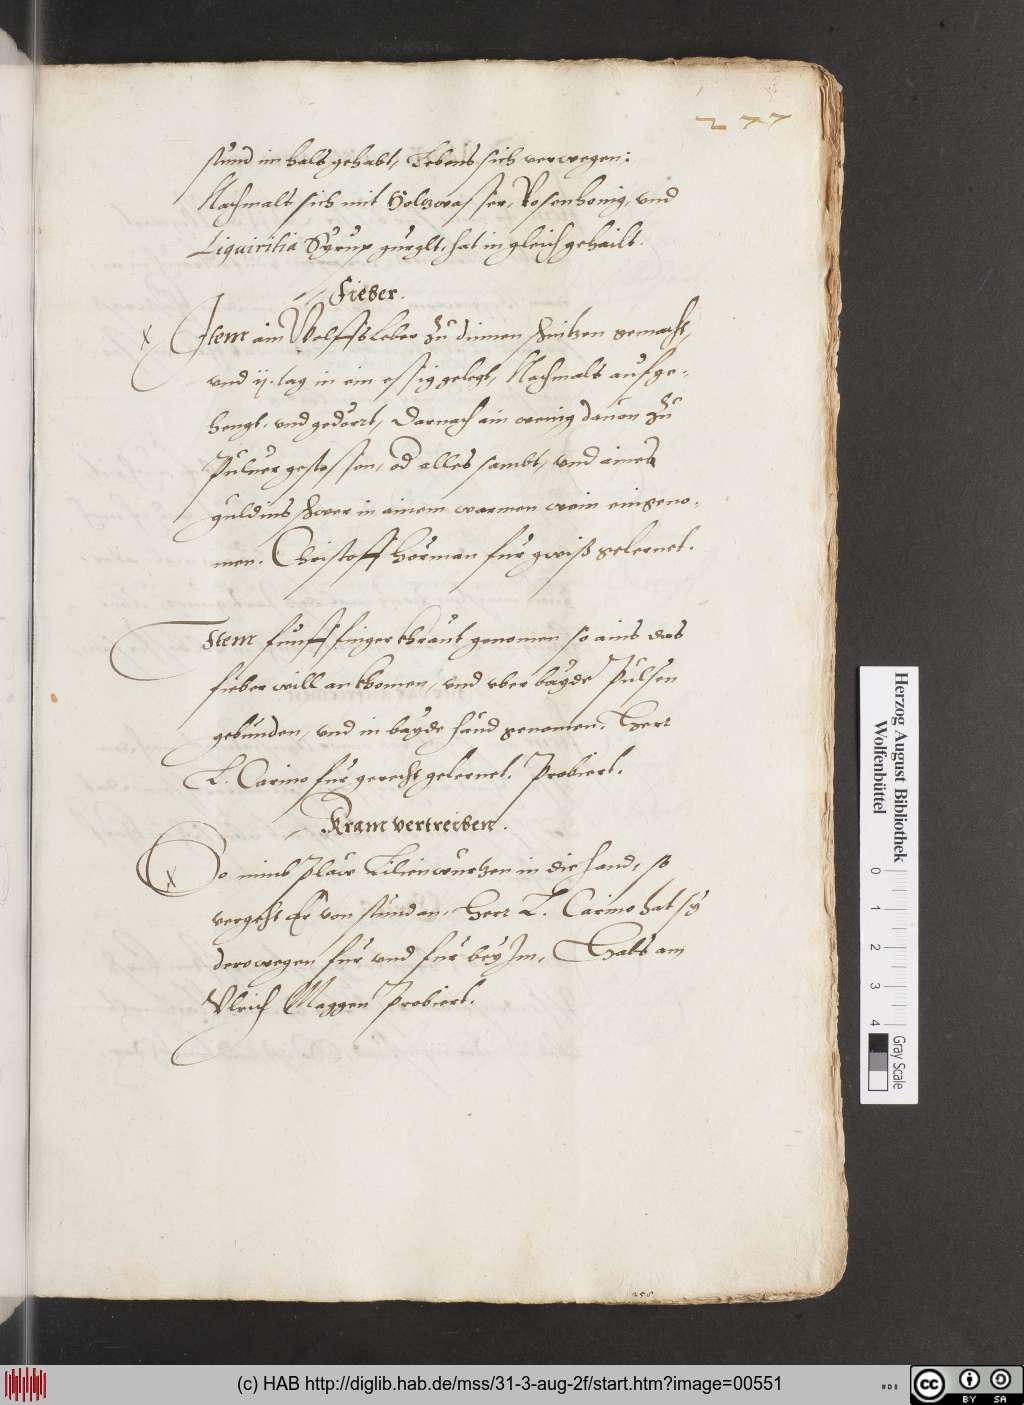 277
stund im hals gehabt, Lebens sich verwegen:
Nachmals sich mit Holtzwasser, Rosenhonig, vnd
Liquiritia Syrup gurglt, hat in gleich gehailt.
Fieber.
x Item ain Wolffsleber zu dinnen schnitzen gemacht,
vnd ij. tag in ein essig gelegt, Nachmals aufge-
hengt, vnd gedörrt, Darnach ain wenig dauon zu
Puluer gestossen, od alles sambt, vnd aines
guldins schwer in ainem warmen wein eingeno-
men. Christoff Hörman fur gwiß gelernet.
Item funff finger khraut genomen so ains das
fieber will ankhomen, vnd vber bayde Pulsen
gebunden, vnd in bayde händ genomen. Herr
L. Carino fur gerecht gelernet. Probiert.
Kram vertreiben.
x So nimb plaw Lilienwurtzen in die hand, so
vergeht Er von stund an. Herr L. Carino hat sy
derowegen fur vnd fur bey Im, Hats am
Vlrich Maggen Probiert.
258
Herzog August Bibliothek
Wolfenbüttel
0 1 2 3 4
Gray Scale
(c) HAB http://diglib.hab.de/mss/31-3-aug-2f/start.htm?image=00551
cc BY SA